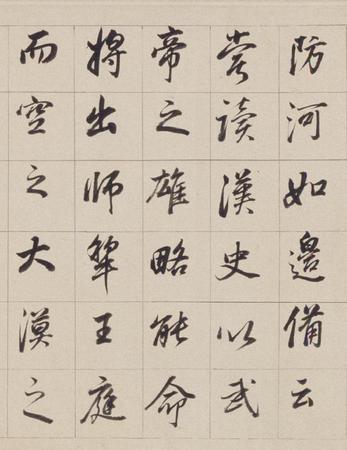 防河如邊備云
嘗讀漢史以武
帝之雄略能命
將出師犂王庭
而空之大漠之